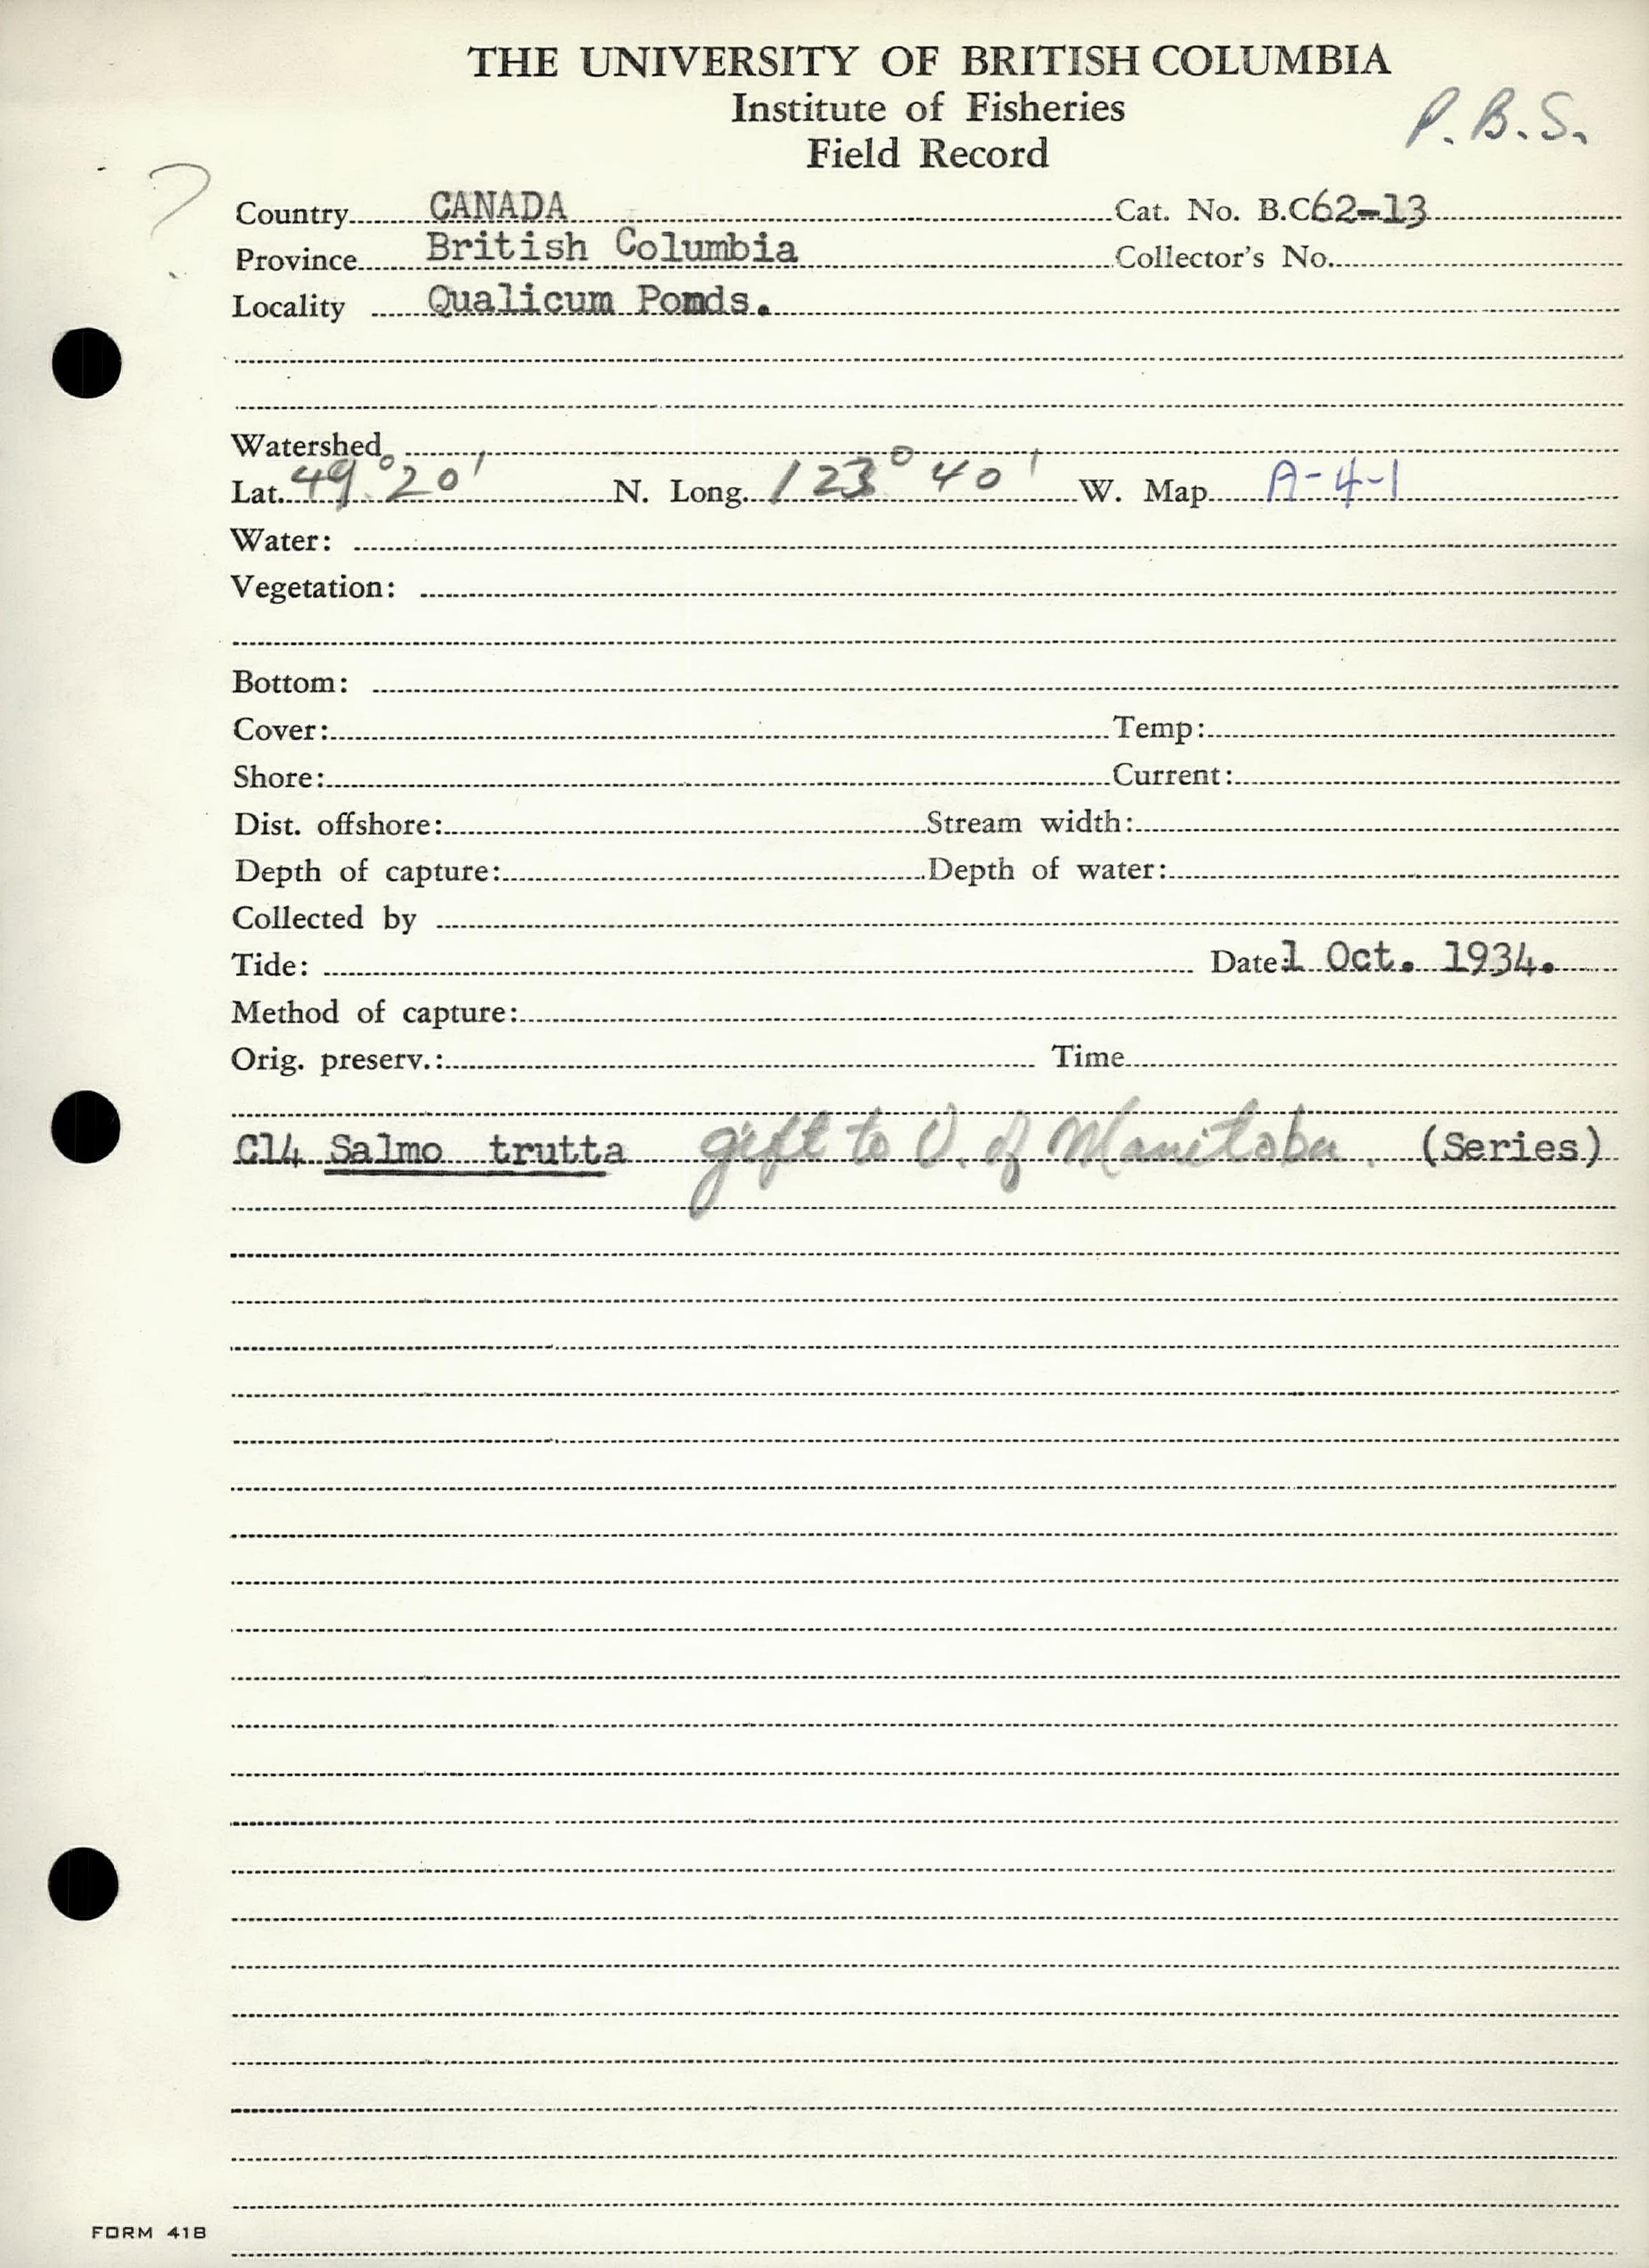 THE UNIVERSITY OF BRITISH COLUMBIA
Institute of Fisheries
Field Record
P.B.S.
?
Country CANADA Cat. No. B.C62-13
Province British Columbia Collector's No.
Locality Qualicum Ponds.
Watershed
Lat. 49°20' N. Long. 123° 40' W. Map A-4-1
Water:
Vegetation:
Bottom:
Cover: Temp:
Shore: Current:
Dist. offshore: Stream width:
Depth of capture: Depth of water:
Collected by
Tide: Date: 1 Oct. 1934.
Method of capture:
Orig. preserv.: Time
C14 Salmo trutta gift to U. of Manitoba. (Series)
FORM 41B